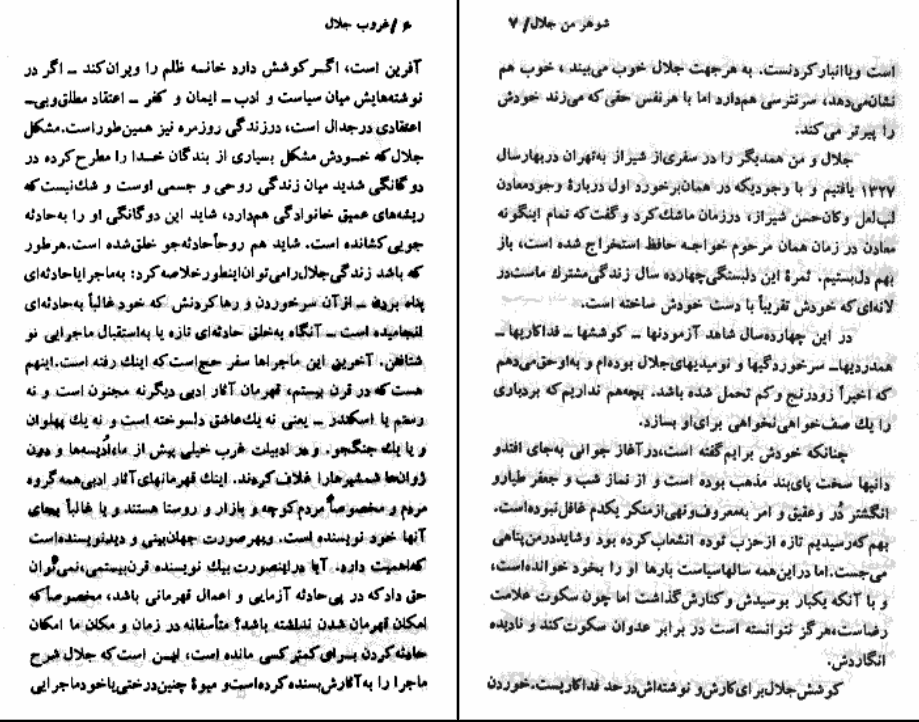 ۶ / غروب جلال
آفرین است، اگـر کوشش دارد خانـه ظلم را ویران کند ـ اگر در
نوشته‌هایش میان سیاست و ادب ـ ایمان و کفر ـ اعتقاد مطلق و بی‌ـ
اعتقادی در جدال است، در زندگی روزمره نیز همین طور است. مشکل
جلال که خـودش مشکل بسیاری از بندگان خـدا را مطرح کرده در
دوگانگی شدید میان زندگی روحی و جسمی اوست و شك نیست که
ریشه‌های عمیق خانوادگی هم دارد، شاید این دوگانگی او را به حادثه
جویی کشانده است. شاید هم روحاً حادثه‌جو خلق شده است. هرطور
که باشد زندگی جلال را می‌توان اینطور خلاصه کرد: به ماجرا یا حادثه‌ای
پناه بردن ـ از آن سرخوردن و رها کردنش که خود غالباً به حادثه‌ای
انجامیده است ـ آنگاه به خلق حادثه‌ای تازه یا به استقبال ماجرایی نو
شتافتن. آخرین این ماجراها سفر حج است که اینك رفته است. اینهم
هست که در قرن بیستم، قهرمان آثار ادبی دیگر نه مجنون است و نه
رستم یا اسکندر ـ یعنی نه یك عاشق دلسوخته است و نه یك پهلوان
و یا یك جنگجو. و در ادبیات غرب خیلی پیش از ما، اُدیسه‌ها و دون
ژوان‌ها شمشیرها را غلاف کردند. اینك قهرمانهای آثار ادبی همه گروه
مردم و مخصوصاً مردم کوچه و بازار و روستا هستند و یا غالباً بجای
آنها خود نویسنده است. و بهر صورت جهان‌بینی و دید نویسنده است
که اهمیت دارد. آیا در اینصورت بیك نویسنده قرن بیستمی، نمی‌توان
حق داد که در پی حادثه آزمایی و اعمال قهرمانی باشد، مخصوصاً که
امکان قهرمان شدن نداشته باشد؟ متأسفانه در زمان و مکان ما امکان
حادثه کردن بـرای کمتر کسی مانده است، ایـن است که جلال شرح
ماجرا را به آثارش بسنده کرده است و میوهٔ چنین درختی یا خود ماجرایی
شوهر من جلال / ۷
است و یا انبار کردنست. به هر جهت جلال خوب می‌بیند، خوب هم
نشان می‌دهد، سر نترسی هم دارد اما با هر نفس حقی که می‌زند خودش
را پیرتر می‌کند.
جلال و من همدیگر را در سفری از شیراز به تهران در بهار سال
۱۳۲۷ یافتیم و با وجودیکه در همان برخورد اول دربارهٔ وجود معادن
لب لعل و کان حسن شیراز، در زمان ما شك کرد و گفت که تمام اینگونه
معادن در زمان همان مرحوم خواجـه حافظ استخراج شده است، باز
بهم دل بستیم. ثمرهٔ این دلبستگی چهارده سال زندگی مشترك ماست در
لانه‌ای که خودش تقریباً با دست خودش ساخته است.
در این چهارده سال شاهد آزمودنها ـ کوششها ـ فداکاریها ـ
همدردیها ـ سرخوردگیها و نومیدیهای جلال بوده‌ام و به او حق می‌دهم
که اخیراً زودرنج و کم تحمل شده باشد. بچه هم نداریم که بردباری
را یك صف خواهی نخواهی برای او بسازد.
چنانکه خودش برایم گفته است، در آغاز جوانی به‌جای افتد و
دانیها سخت پای‌بند مذهب بوده است و از نماز شب و جعفر طیار و
انگشتر دُر و عقیق و امر به معروف و نهی از منکر یکدم غافل نبوده است.
بهم که رسیدیم تازه از حزب توده انشعاب کرده بود و شاید در من پناهی
می‌جست. اما در این همه سالها سیاست بارها او را بخود خوانده است،
و با آنکه یکبار بوسیدش و کنارش گذاشت اما چون سکوت علامت
رضاست، هرگز نتوانسته است در برابر عدوان سکوت کند و نادیده
انگاردش.
کوشش جلال برای کارش و نوشته‌اش در حد فداکاریست. خوردن